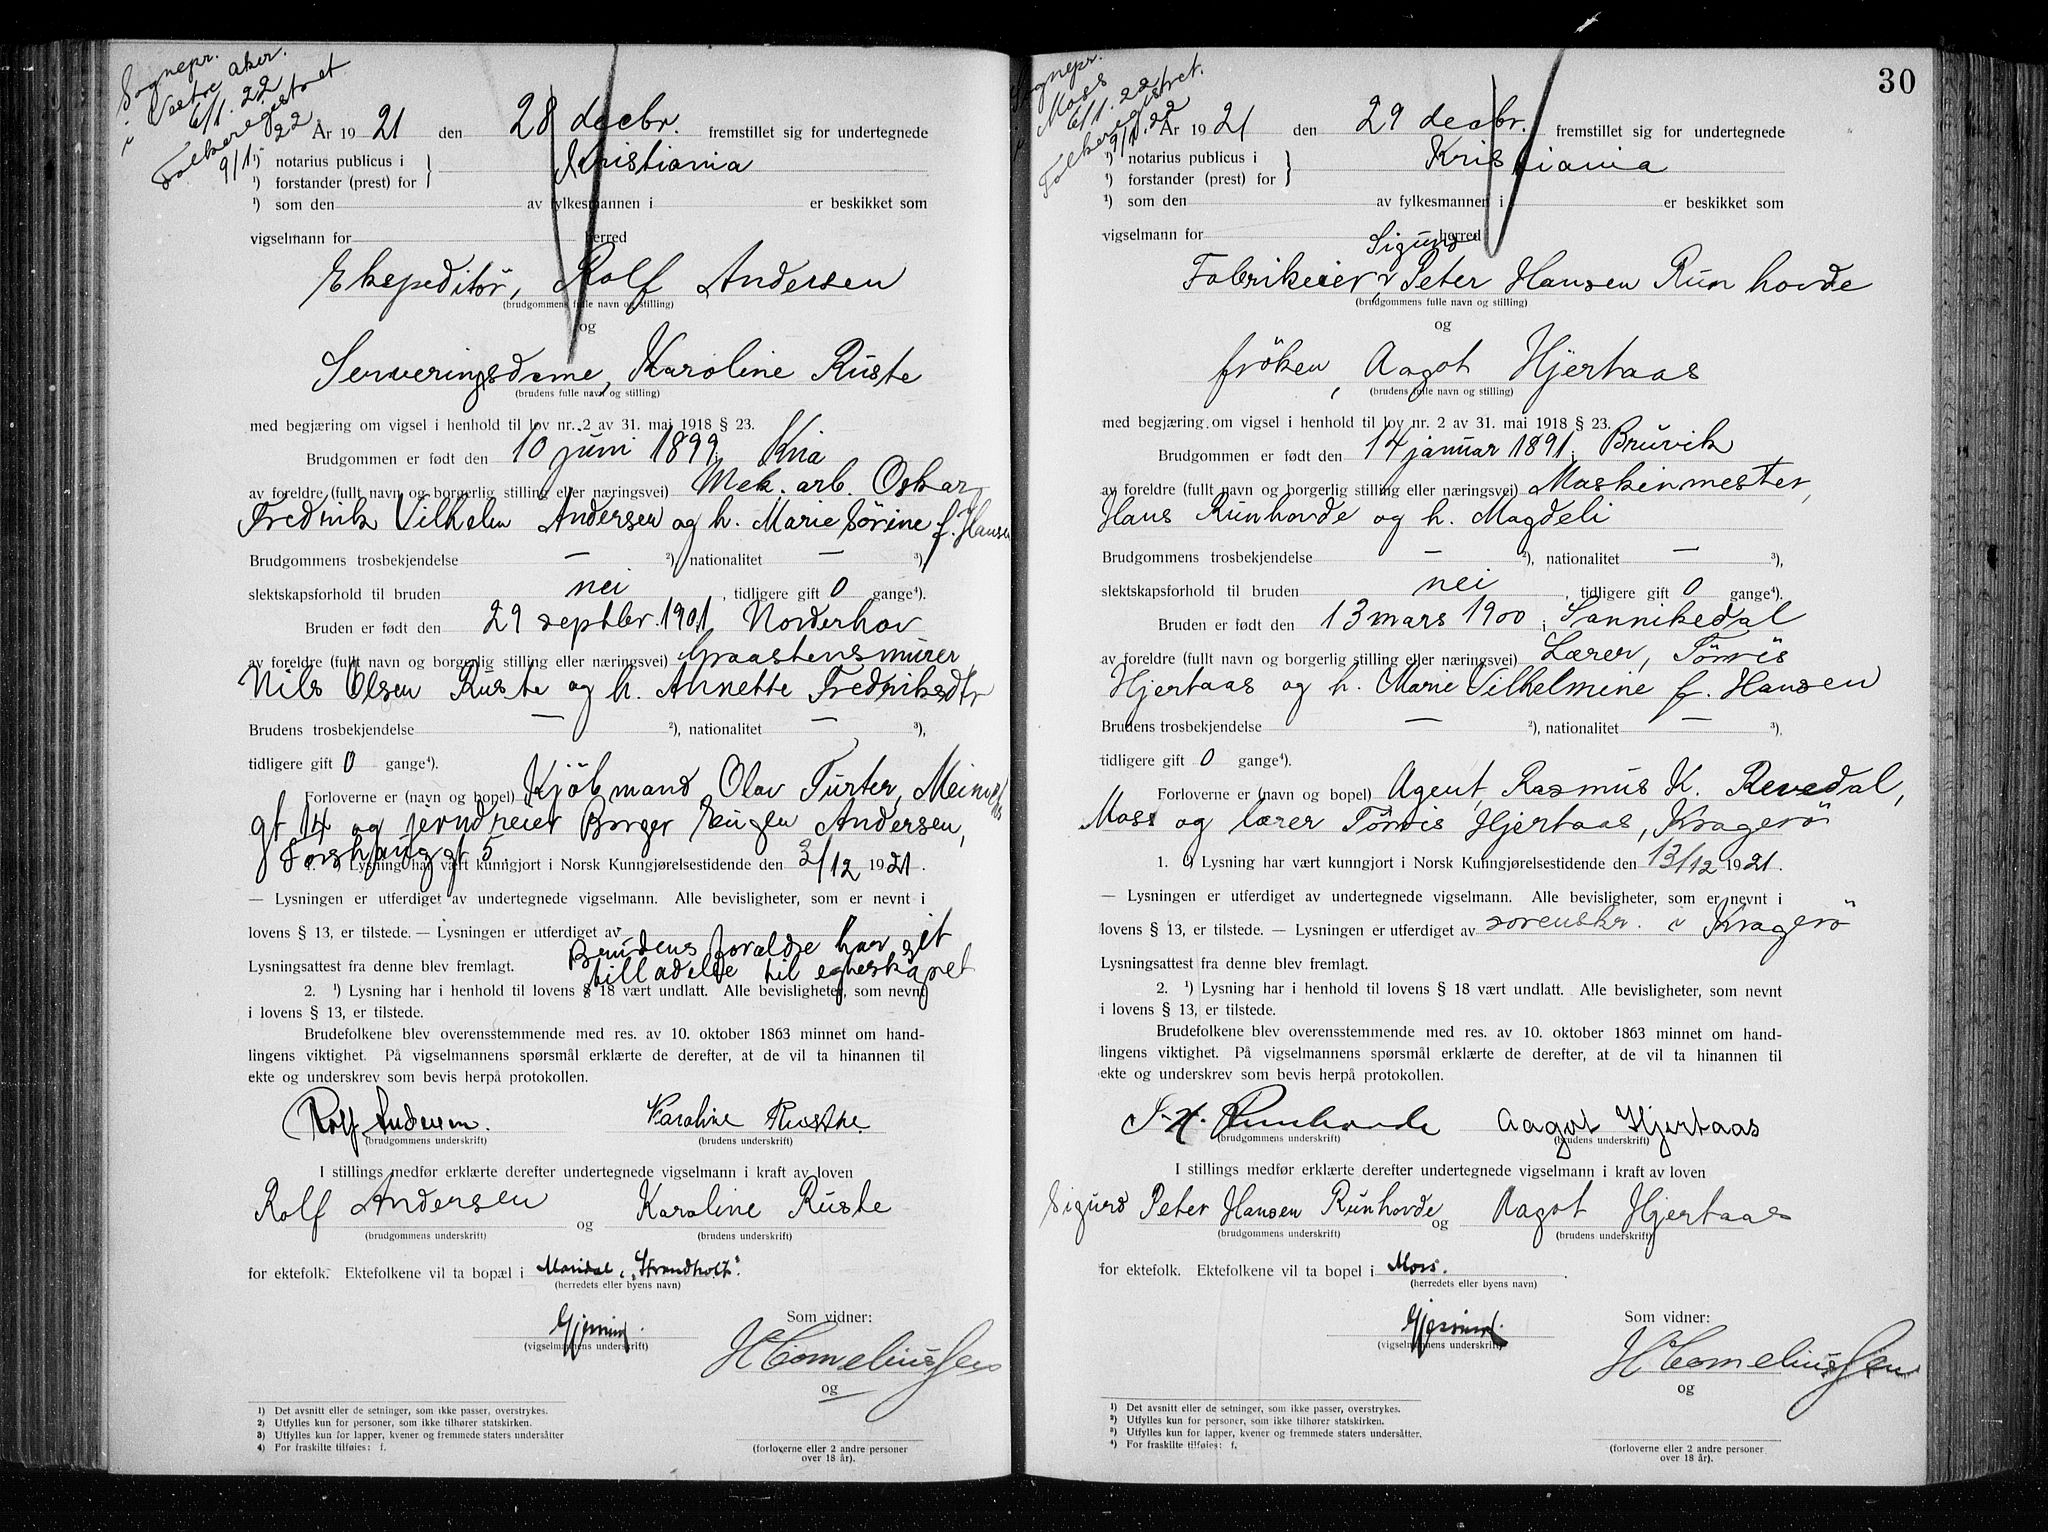 Sognepr.
i Vestre Aker.
6/1. 22
Folkeregistret
9/1. 22
År 1921 den 28 decbr. fremstillet sig for undertegnede
¹) notarius publicus i } Kristiania
¹) forstander (prest) for
¹) som den av fylkesmannen i er beskikket som
vigselmann for herred
Ekspeditør, Rolf Andersen
(brudgommens fulle navn og stilling)
og
Serveringsdame, Karoline Ruste
(brudens fulle navn og stilling)
med begjæring om vigsel i henhold til lov nr. 2 av 31. mai 1918 § 23.
Brudgommen er født den 10 juni 1899, Kria
av foreldre (fullt navn og borgerlig stilling eller næringsvei) Mek. arb. Oskar
Fredrik Vilhelm Andersen og h. Marie Sørine f. Hansen
Brudgommens trosbekjendelse — ²), nationalitet — ³),
slektskapsforhold til bruden nei, tidligere gift 0 gange⁴).
Bruden er født den 29 septbr. 1901, Norderhov
av foreldre (fullt navn og borgerlig stilling eller næringsvei) Graastensmurer
Nils Olsen Ruste og h. Annette Fredriksdtr
Brudens trosbekjendelse — ²), nationalitet — ³),
tidligere gift 0 gange⁴).
Forloverne er (navn og bopel) Kjöbmand Olav Furter,
gt 14 og jerndreier Borger Eugen Andersen,
gt 5
1. ¹) Lysning har vært kunngjort i Norsk Kunngjørelsestidende den 3/12 1921.
— Lysningen er utferdiget av undertegnede vigselmann. Alle bevisligheter, som er nevnt i
lovens § 13, er tilstede. — Lysningen er utferdiget av
Brudens foraldre har git
Lysningsattest fra denne blev fremlagt. tilladelse til egteskapet
2. ¹) Lysning har i henhold til lovens § 18 vært undlatt. Alle bevisligheter, som nevnt
i lovens § 13, er tilstede.
Brudefolkene blev overensstemmende med res. av 10. oktober 1863 minnet om hand-
lingens viktighet. På vigselmannens spørsmål erklærte de derefter, at de vil ta hinannen til
ekte og underskrev som bevis herpå protokollen.
Rolf Andersen. Karoline Rustke
(brudgommens underskrift) (brudens underskrift)
I stillings medfør erklærte derefter undertegnede vigselmann i kraft av loven
Rolf Andersen og Karoline Ruste
(brudgommens underskrift) (brudens underskrift)
for ektefolk. Ektefolkene vil ta bopæl i Maridal, "Strandholt".
(herredets eller byens navn)
Gjessing. Som vidner:
(vigselmannens underskrift)
H Corneliussen
og
1) Det avsnitt eller de setninger, som ikke passer, overstrykes.
2) Utfylles kun for personer, som ikke tilhører statskirken.
3) Utfylles kun for lapper, kvener og fremmede staters undersåtter
4) For fraskilte tilføies: f.
(forloverne eller 2 andre personer
over 18 år).
30
Sognepr.
i Moss
6/1. 22
Folkeregistret.
9/1. 22
År 1921 den 29 decbr. fremstillet sig for undertegnede
¹) notarius publicus i } Kristiania
¹) forstander (prest) for
¹) som den av fylkesmannen i er beskikket som
vigselmann for herred
Sigurd
Fabrikeier, Peter Hansen Runhovde
(brudgommens fulle navn og stilling)
og
fröken, Aagot Hjertaas
(brudens fulle navn og stilling)
med begjæring om vigsel i henhold til lov nr. 2 av 31. mai 1918 § 23.
Brudgommen er født den 14 januar 1891, Bruvik
av foreldre (fullt navn og borgerlig stilling eller næringsvei) Maskinmester,
Hans Runhovde og h. Magdeli
Brudgommens trosbekjendelse — ²), nationalitet — ³),
slektskapsforhold til bruden nei, tidligere gift 0 gange⁴).
Bruden er født den 13 mars 1900, i Sannikedal
av foreldre (fullt navn og borgerlig stilling eller næringsvei) Lærer, Tönnis
Hjertaas og h. Marie Vilhelmine f. Hansen
Brudens trosbekjendelse — ²), nationalitet — ³),
tidligere gift 0 gange⁴).
Forloverne er (navn og bopel) Agent, Rasmus K. Revedal,
Moss og lærer Tönnis Hjertaas, Kragerö
1. ¹) Lysning har vært kunngjort i Norsk Kunngjørelsestidende den 13/12 1921.
— Lysningen er utferdiget av undertegnede vigselmann. Alle bevisligheter, som er nevnt i
lovens § 13, er tilstede. — Lysningen er utferdiget av sorenskr. i Kragerö
Lysningsattest fra denne blev fremlagt.
2. ¹) Lysning har i henhold til lovens § 18 vært undlatt. Alle bevisligheter, som nevnt
i lovens § 13, er tilstede.
Brudefolkene blev overensstemmende med res. av 10. oktober 1863 minnet om hand-
lingens viktighet. På vigselmannens spørsmål erklærte de derefter, at de vil ta hinannen til
ekte og underskrev som bevis herpå protokollen.
S. H. Runhovde Aagot Hjertaas
(brudgommens underskrift) (brudens underskrift)
I stillings medfør erklærte derefter undertegnede vigselmann i kraft av loven
Sigurd Peter Hansen Runhovde og Aagot Hjertaas
(brudgommens underskrift) (brudens underskrift)
for ektefolk. Ektefolkene vil ta bopel i Moss.
(herredets eller byens navn)
Gjessing. Som vidner:
(vigselmannens underskrift)
H Corneliussen
og
1) Det avsnitt eller de setninger, som ikke passer, overstrykes.
2) Utfylles kun for personer, som ikke tilhører statskirken.
3) Utfylles kun for lapper, kvener og fremmede staters undersåtter.
4) For fraskilte tilføies: f.
(forloverne eller 2 andre personer
over 18 år).